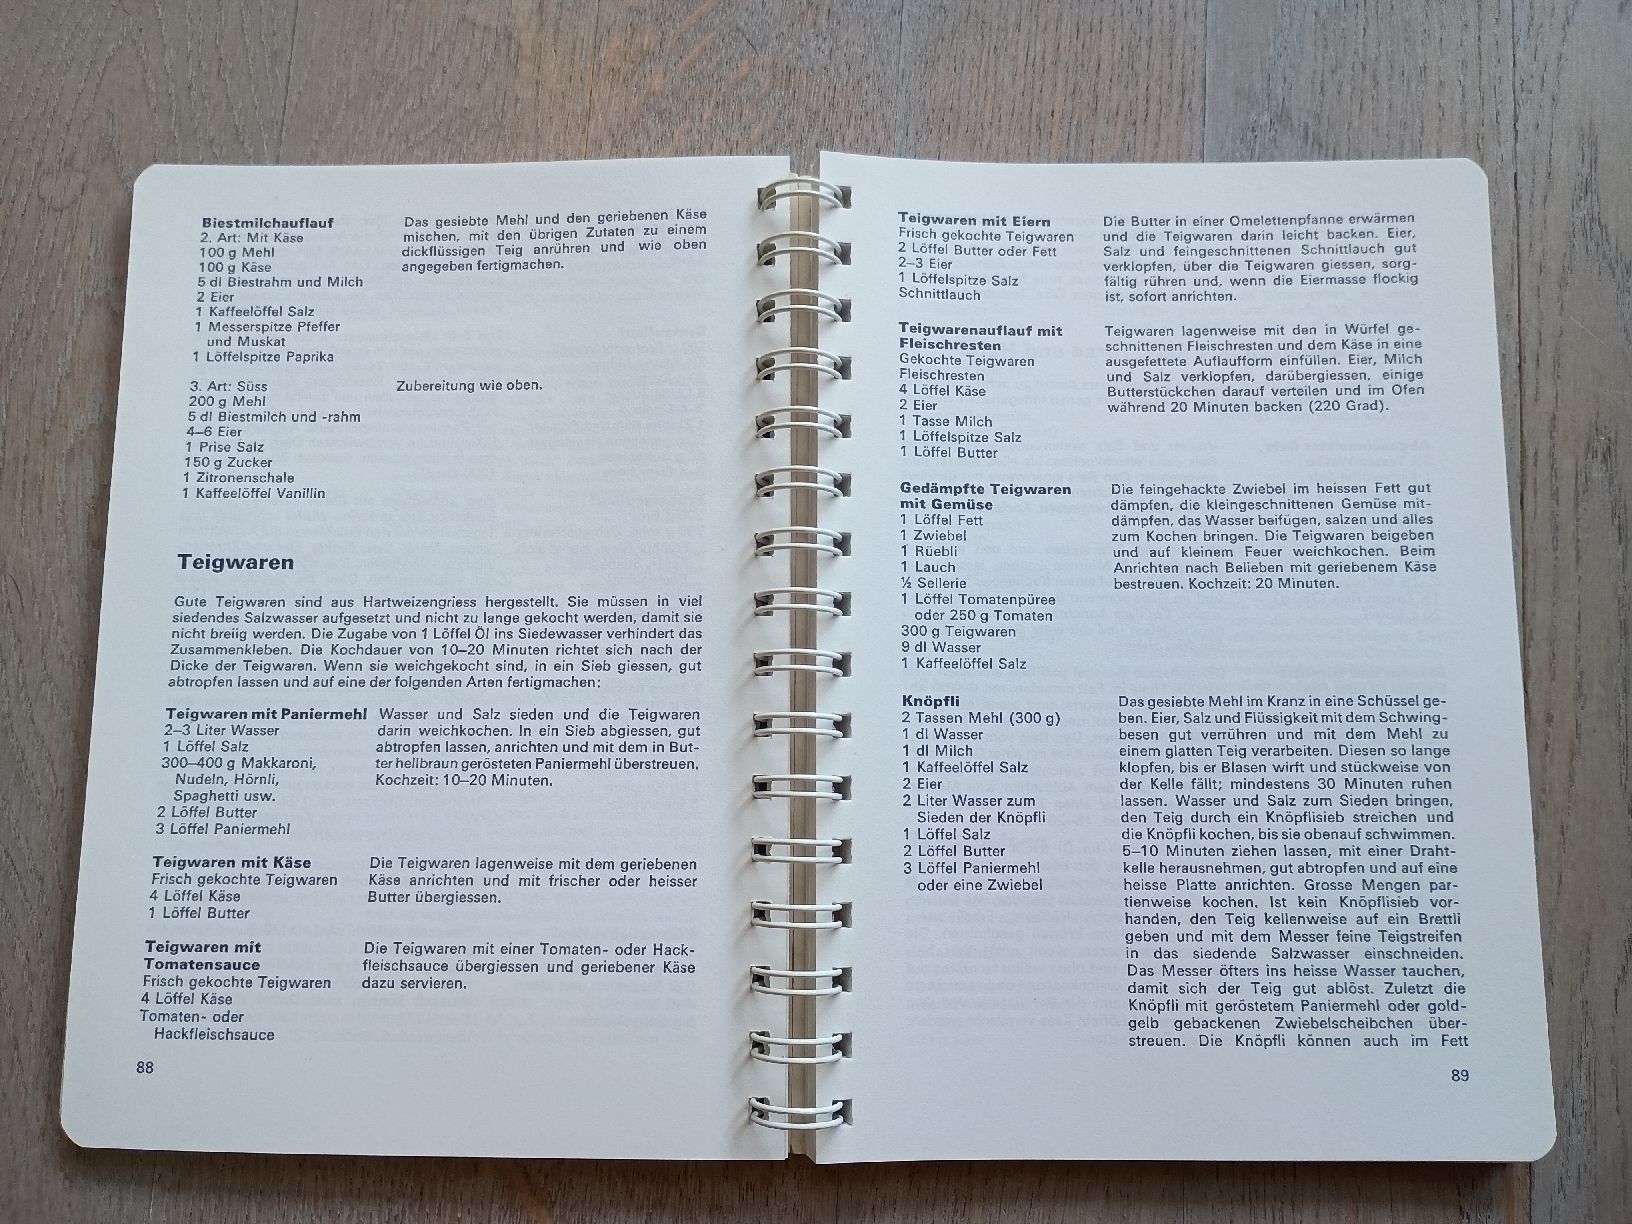 Biestmilchauflauf
2. Art: Mit Käse
100 g Mehl
100 g Käse
5 dl Biestrahm und Milch
2 Eier
1 Kaffeelöffel Salz
1 Messerspitze Pfeffer
und Muskat
1 Löffelspitze Paprika
Das gesiebte Mehl und den geriebenen Käse
mischen, mit den übrigen Zutaten zu einem
dickflüssigen Teig anrühren und wie oben
angegeben fertigmachen.
3. Art: Süss
200 g Mehl
5 dl Biestmilch und -rahm
4–6 Eier
1 Prise Salz
150 g Zucker
1 Zitronenschale
1 Kaffeelöffel Vanillin
Zubereitung wie oben.
Teigwaren
Gute Teigwaren sind aus Hartweizengriess hergestellt. Sie müssen in viel
siedendes Salzwasser aufgesetzt und nicht zu lange gekocht werden, damit sie
nicht breiig werden. Die Zugabe von 1 Löffel Öl ins Siedewasser verhindert das
Zusammenkleben. Die Kochdauer von 10–20 Minuten richtet sich nach der
Dicke der Teigwaren. Wenn sie weichgekocht sind, in ein Sieb giessen, gut
abtropfen lassen und auf eine der folgenden Arten fertigmachen:
Teigwaren mit Paniermehl
2–3 Liter Wasser
1 Löffel Salz
300–400 g Makkaroni,
Nudeln, Hörnli,
Spaghetti usw.
2 Löffel Butter
3 Löffel Paniermehl
Wasser und Salz sieden und die Teigwaren
darin weichkochen. In ein Sieb abgiessen, gut
abtropfen lassen, anrichten und mit dem in But-
ter hellbraun gerösteten Paniermehl überstreuen.
Kochzeit: 10–20 Minuten.
Teigwaren mit Käse
Frisch gekochte Teigwaren
4 Löffel Käse
1 Löffel Butter
Die Teigwaren lagenweise mit dem geriebenen
Käse anrichten und mit frischer oder heisser
Butter übergiessen.
Teigwaren mit
Tomatensauce
Frisch gekochte Teigwaren
4 Löffel Käse
Tomaten- oder
Hackfleischsauce
Die Teigwaren mit einer Tomaten- oder Hack-
fleischsauce übergiessen und geriebener Käse
dazu servieren.
88
Teigwaren mit Eiern
Frisch gekochte Teigwaren
2 Löffel Butter oder Fett
2–3 Eier
1 Löffelspitze Salz
Schnittlauch
Die Butter in einer Omelettenpfanne erwärmen
und die Teigwaren darin leicht backen. Eier,
Salz und feingeschnittenen Schnittlauch gut
verklopfen, über die Teigwaren giessen, sorg-
fältig rühren und, wenn die Eiermasse flockig
ist, sofort anrichten.
Teigwarenauflauf mit
Fleischresten
Gekochte Teigwaren
Fleischresten
4 Löffel Käse
2 Eier
1 Tasse Milch
1 Löffelspitze Salz
1 Löffel Butter
Teigwaren lagenweise mit den in Würfel ge-
schnittenen Fleischresten und dem Käse in eine
ausgefettete Auflaufform einfüllen. Eier, Milch
und Salz verklopfen, darübergiessen, einige
Butterstückchen darauf verteilen und im Ofen
während 20 Minuten backen (220 Grad).
Gedämpfte Teigwaren
mit Gemüse
1 Löffel Fett
1 Zwiebel
1 Rüebli
1 Lauch
½ Sellerie
1 Löffel Tomatenpüree
oder 250 g Tomaten
300 g Teigwaren
9 dl Wasser
1 Kaffeelöffel Salz
Die feingehackte Zwiebel im heissen Fett gut
dämpfen, die kleingeschnittenen Gemüse mit-
dämpfen, das Wasser beifügen, salzen und alles
zum Kochen bringen. Die Teigwaren beigeben
und auf kleinem Feuer weichkochen. Beim
Anrichten nach Belieben mit geriebenem Käse
bestreuen. Kochzeit: 20 Minuten.
Knöpfli
2 Tassen Mehl (300 g)
1 dl Wasser
1 dl Milch
1 Kaffeelöffel Salz
2 Eier
2 Liter Wasser zum
Sieden der Knöpfli
1 Löffel Salz
2 Löffel Butter
3 Löffel Paniermehl
oder eine Zwiebel
Das gesiebte Mehl im Kranz in eine Schüssel ge-
ben. Eier, Salz und Flüssigkeit mit dem Schwing-
besen gut verrühren und mit dem Mehl zu
einem glatten Teig verarbeiten. Diesen so lange
klopfen, bis er Blasen wirft und stückweise von
der Kelle fällt; mindestens 30 Minuten ruhen
lassen. Wasser und Salz zum Sieden bringen,
den Teig durch ein Knöpflisieb streichen und
die Knöpfli kochen, bis sie obenauf schwimmen.
5–10 Minuten ziehen lassen, mit einer Draht-
kelle herausnehmen, gut abtropfen und auf eine
heisse Platte anrichten. Grosse Mengen par-
tienweise kochen. Ist kein Knöpflisieb vor-
handen, den Teig kellenweise auf ein Brettli
geben und mit dem Messer feine Teigstreifen
in das siedende Salzwasser einschneiden.
Das Messer öfters ins heisse Wasser tauchen,
damit sich der Teig gut ablöst. Zuletzt die
Knöpfli mit geröstetem Paniermehl oder gold-
gelb gebackenen Zwiebelscheibchen über-
streuen. Die Knöpfli können auch im Fett
89